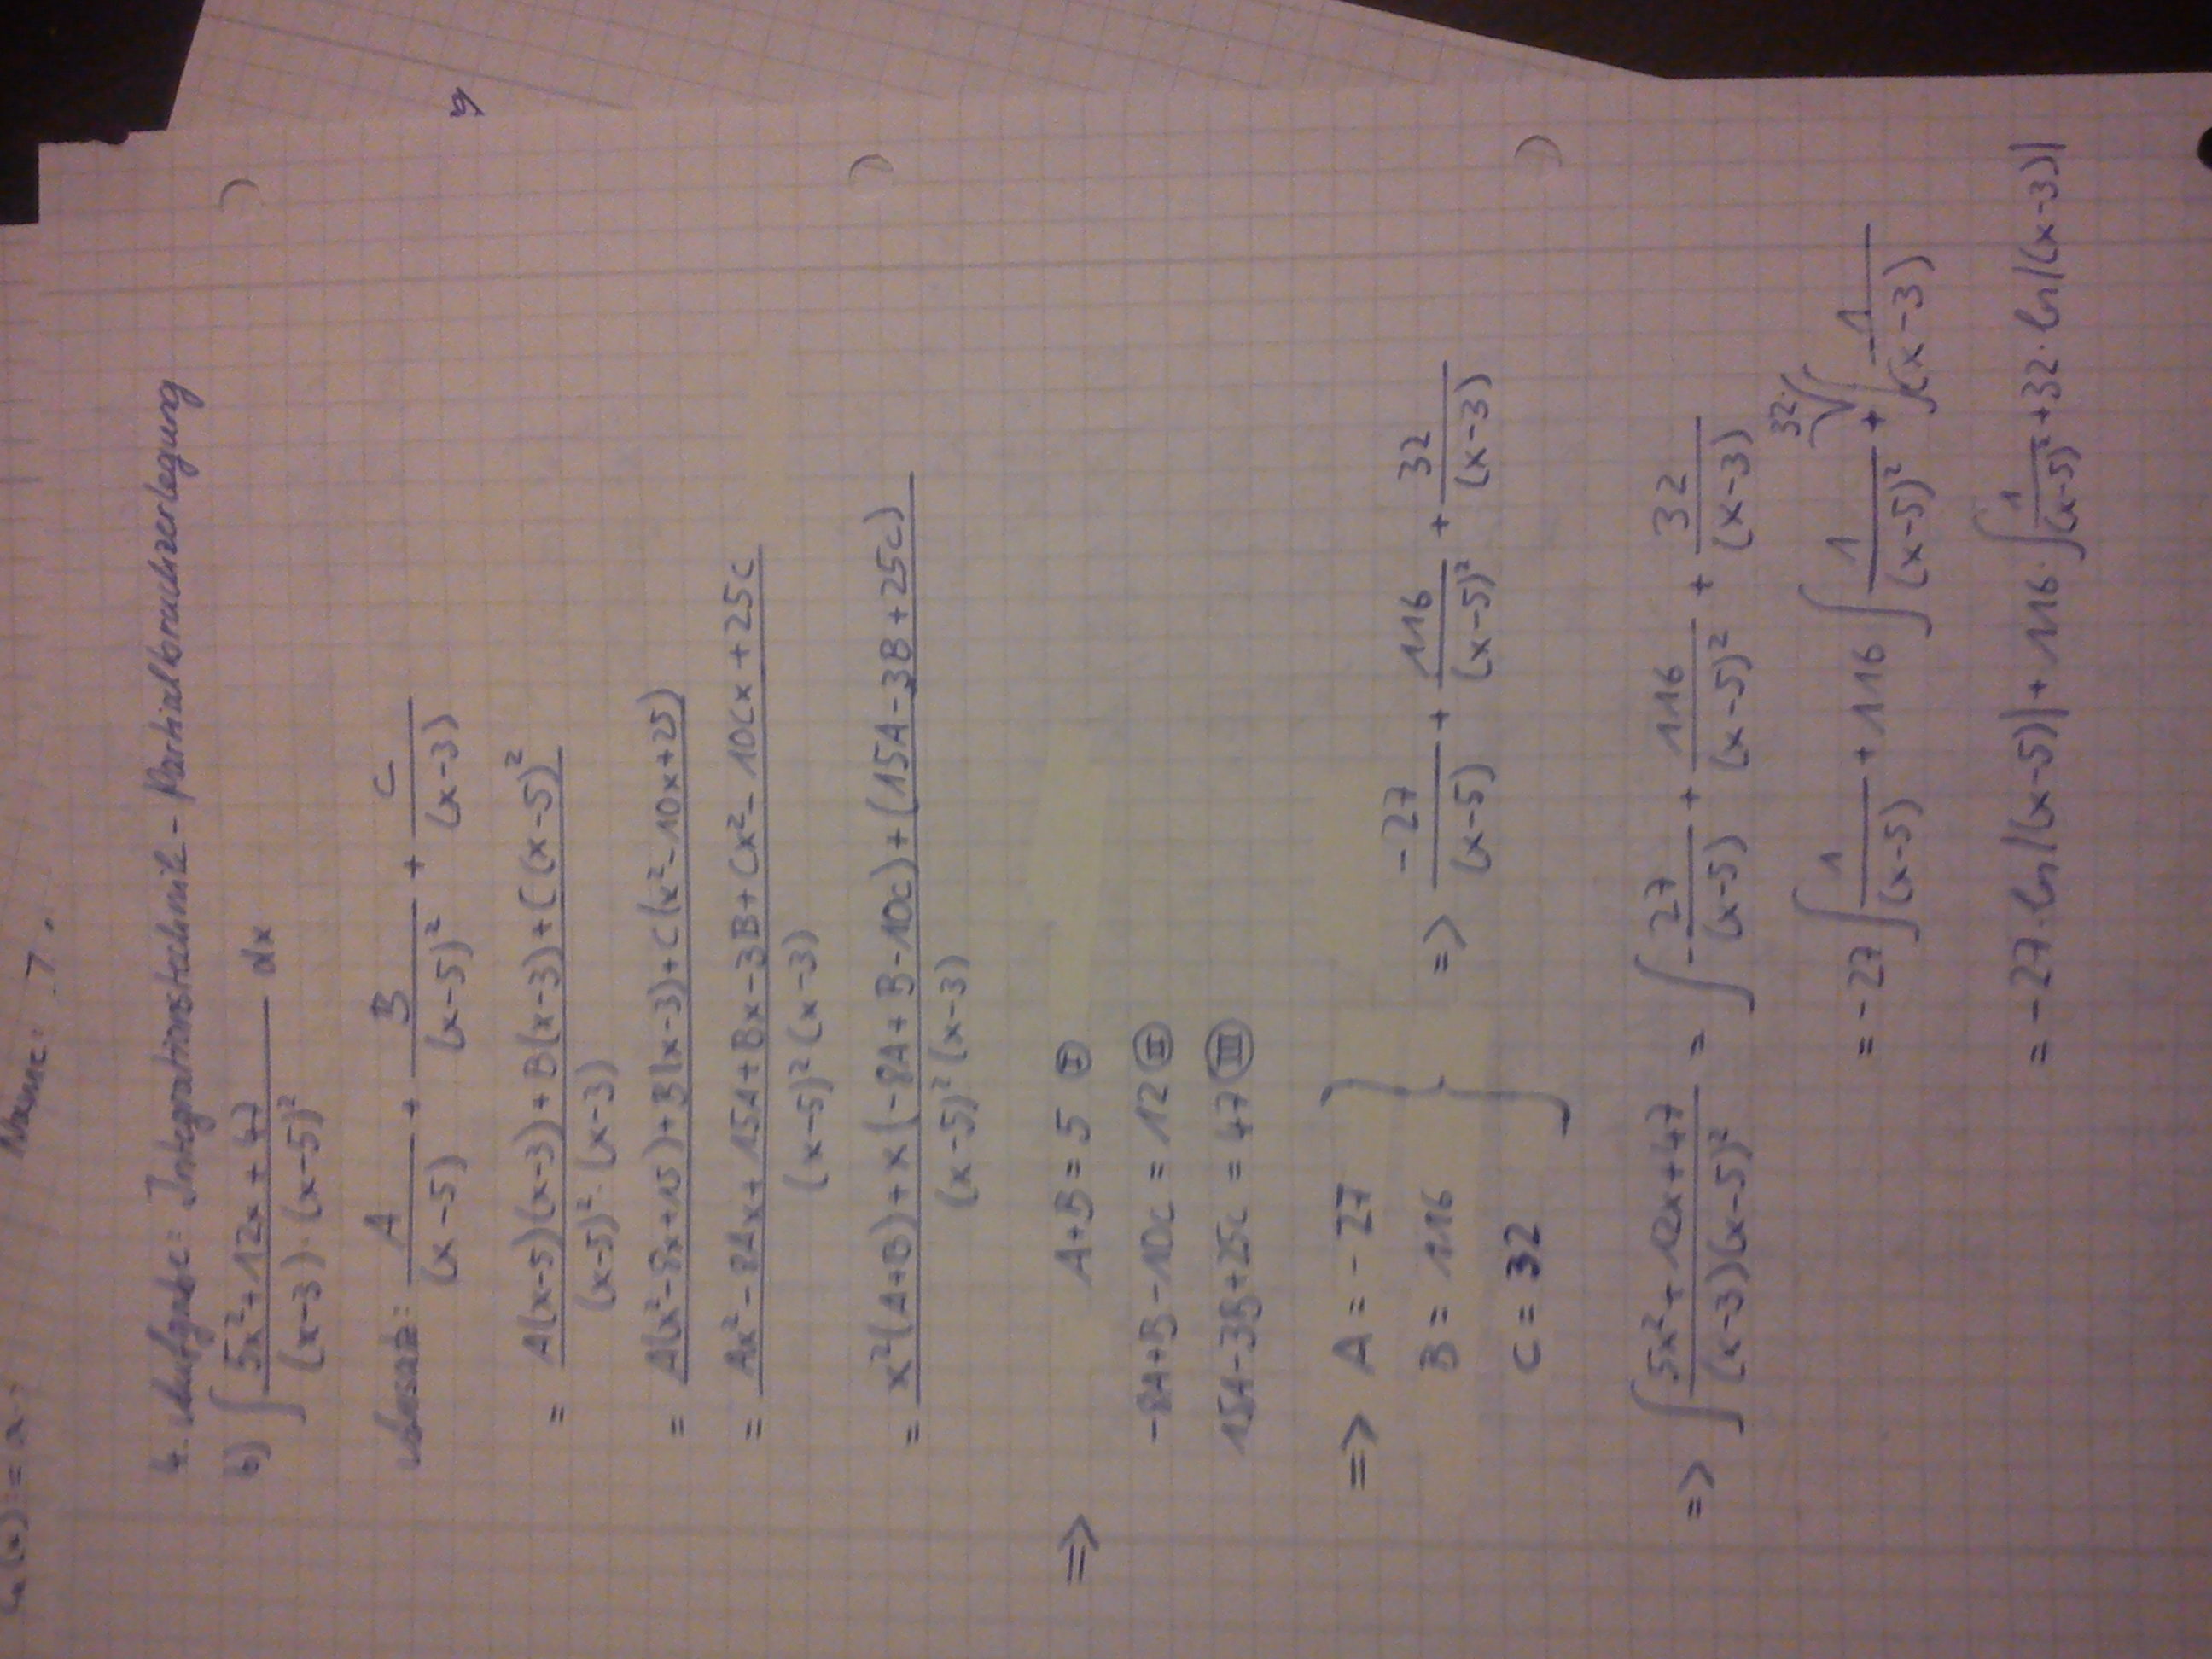 Name: J.
4. Aufgabe: Integrationstechnik - Partialbruchzerlegung
b) ∫ (5x²+12x+47)/((x-3)·(x-5)²) dx
Ansatz: A/(x-5) + B/(x-5)² + C/(x-3)
= (A(x-5)(x-3)+B(x-3)+C(x-5)²)/((x-5)²·(x-3))
= A(x²-8x+15)+B(x-3)+C(x²-10x+25)
= (Ax²-8Ax+15A+Bx-3B+Cx²-10Cx+25C)/((x-5)²(x-3))
= (x²(A+B)+x(-8A+B-10C)+(15A-3B+25C))/((x-5)²(x-3))
=> A+B=5 Ⓘ
-8A+B-10C=12 Ⓘ︎Ⓘ
15A-3B+25C=47 (III)
=> A=-27
B=116
C=32
=> -27/(x-5) + 116/(x-5)² + 32/(x-3)
=> ∫ (5x²+12x+47)/((x-3)(x-5)²) = ∫ -27/(x-5) + 116/(x-5)² + 32/(x-3)
= -27 ∫ 1/(x-5) + 116 ∫ 1/(x-5)² + 32· ∫ 1/(x-3)
= -27·ln|(x-5)|+116·∫ 1/(x-5)² +32·ln|(x-3)|